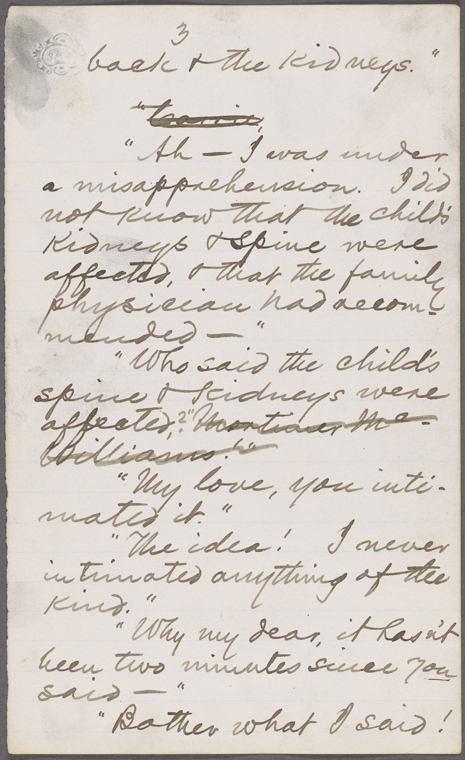 3
back & the kidneys."
"Ah — I was under
a misapprehension. I did
not know that the child's
kidneys & spine were
affected, & that the family
physician had recom-
mended — "
"Who said the child's
spine & kidneys were
affected?" Mortimer Mc-
Williams!"
"My love, you inti-
mated it."
"The idea! I never
intimated anything of the
kind."
"Why my dear, it hasn't
been two minutes since you
said — "
"Bother what I said!